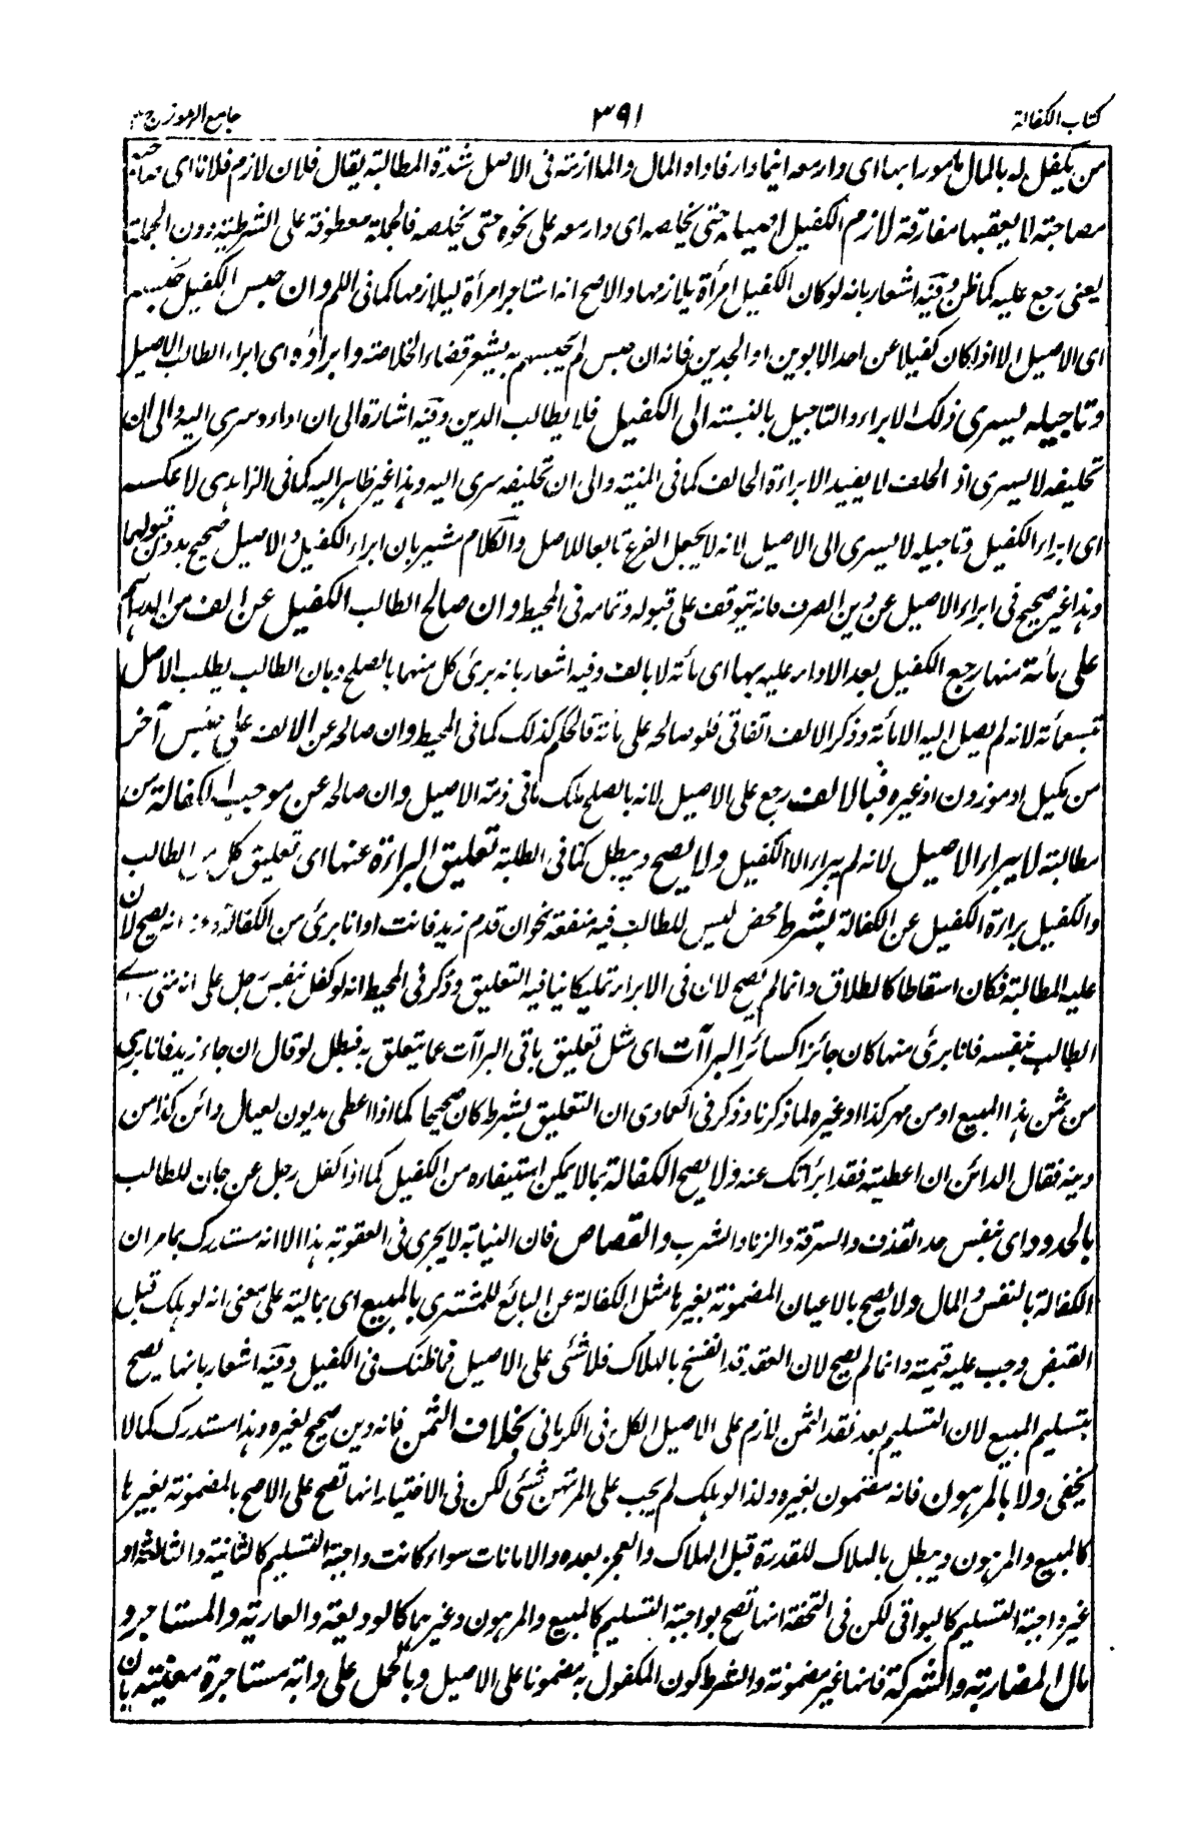 كتاب الكفالة
٣٩١
جامع الرموز ج
من يكفل له بالمال مأمورا بها اى دار معه اينما دار فاداه المال والملازمة فى الاصل شدة المطالبة يقال فلان لازم فلانا اى
مصاحبة لا يعقبها مفارقة لازم الكفيل اصيله حتى يخلصه اى دار معه على نحوه حتى يخلصه فالجملة معطوفة على الشرطية دون الجملة
يعنى رجع عليه كما ظن وفيه اشعار بانه لو كان الكفيل امرأة يلازمها والاصح انه استاجر امرأة ليلازمها كما فى وان حبس الكفيل حبسه
اى الاصيل الا اذا كان كفيلا عن احد الابوين او الجدين فانه ان حبس لم يحبسهم به يشعر قضاء الخلاصة وابراؤه اى ابراء الطالب الاصيل
وتاجيله يسرى ذلك الابراء والتاجيل بالنسبة الى الكفيل فلا يطالب الدين وفيه اشارة الى ان اداءه سرى اليه والى ان
تحليفه لا يسرى اذ الحلف لا يفيد الا براءة الحالف كما فى المنية والى ان تحليفه سرى اليه وهذا غير ظاهر اليه كما فى الزاهدى لا عكسه
اى ابراء الكفيل وتاجيله لا يسرى الى الاصيل لانه لا يجعل الفرع تابعا للاصل والكلام مشير بان ابراء الكفيل والاصيل صحيح بدون قبولهما
وهذا غير صحيح فى ابراء الاصيل عن دين الصرف فانه يتوقف على قبوله وتمامه فى المحيط وان صالح الطالب الكفيل عن الف من الدراهم
على مأئة منها رجع الكفيل بعد الاداء عليه بها اى بمأئة لا بالف وفيه اشعار بانه برئ كل منهما بالصلح وبان الطالب يطلب الاصل
تسعمأئة لانه لم يصل اليه الا مأئة وذكر الالف اتفاقى فلو صالحه على مأئة فالحكم كذلك كما فى المحيط وان صالحه عن الالف على جنس آخر
من مكيل او موزون او غيره فبالالف رجع على الاصيل لانه بالصلح ملك ما فى ذمة الاصيل وان صالحه عن موجب الكفالة من
مطالبة لا يبراء الاصيل لانه لم يبراء الا الكفيل ولا يصح ويبطل كما فى الطلبة تعليق البراءة عنها اى تعليق كل من الطالب
والكفيل براءة الكفيل عن الكفالة بشرط محض ليس للطالب فيه منفعة نحو ان قدم زيد فانت او انا برئ من الكفالة انه يصح لان
عليه المطالبة فكان اسقاطا كالطلاق وانما لم يصح لان فى الابراء تمليكا ينافيه التعليق وذكر فى المحيط انه لو كفل بنفس رجل على انه متى
الطالب بنفسه فانا برئ منها كان جائزا كسائر البراآت اى مثل تعليق باقى البراآت عما يتعلق به فبطل لو قال ان جاء زيد فانا برئ
من ثمن هذا المبيع او من مهر كذا او غيره لما ذكرنا وذكر فى العمادى ان التعليق بشرط كان صحيحا كما اذا اعطى مديون لعيال دائن كذا من
دينه فقال الدائن ان اعطيته فقد ابراتك عنه ولا يصح الكفالة بما لا يمكن استيفاءه من الكفيل كما اذا كفل رجل عن جان للطالب
بالحدود اى بنفس حد القذف والسرقة والزنا والشرب والقصاص فان النيابة لا يجرى فى العقوبة هذا الا انه مستدرك بما مر ان
الكفالة بالنفس والمال ولا يصح بالاعيان المضمونة بغيرها مثل الكفالة عن البائع للمشترى بالمبيع اى بماليته على معنى انه لو هلك قبل
القبض وجب عليه قيمته وانما لم يصح لان العقد قد انفسخ بالهلاك فلا شئ على الاصيل فما ظنك فى الكفيل وفيه اشعار بانها يصح
بتسليم المبيع لان التسليم بعد نقد الثمن لازم على الاصيل الكل فى الكرمانى بخلاف الثمن فانه دين صحيح لغيره وهذا مستدرك كما لا
يخفى ولا بالمرهون فانه مضمون بغيره ولذا لو هلك لم يجب على المرتهن شئ لكن فى الاختيار انها تصح على الاصح بالمضمونة بغيرها
كالمبيع والمرهون ويبطل بالهلاك للقدرة قبل الهلاك والعجز بعده والامانات سواء كانت واجبة التسليم كالثانية والثالثة او
غير واجبة التسليم كالبواقى لكن فى التحفة انها تصح بواجبة التسليم كالمبيع والمرهون وغيرهما كالوديعة والعارية والمستاجر و
مال المضاربة والشركة فانها غير مضمونة والشرط كون المكفول به مضمونا على الاصيل وبالحمل على دابة مستاجرة معينة بان